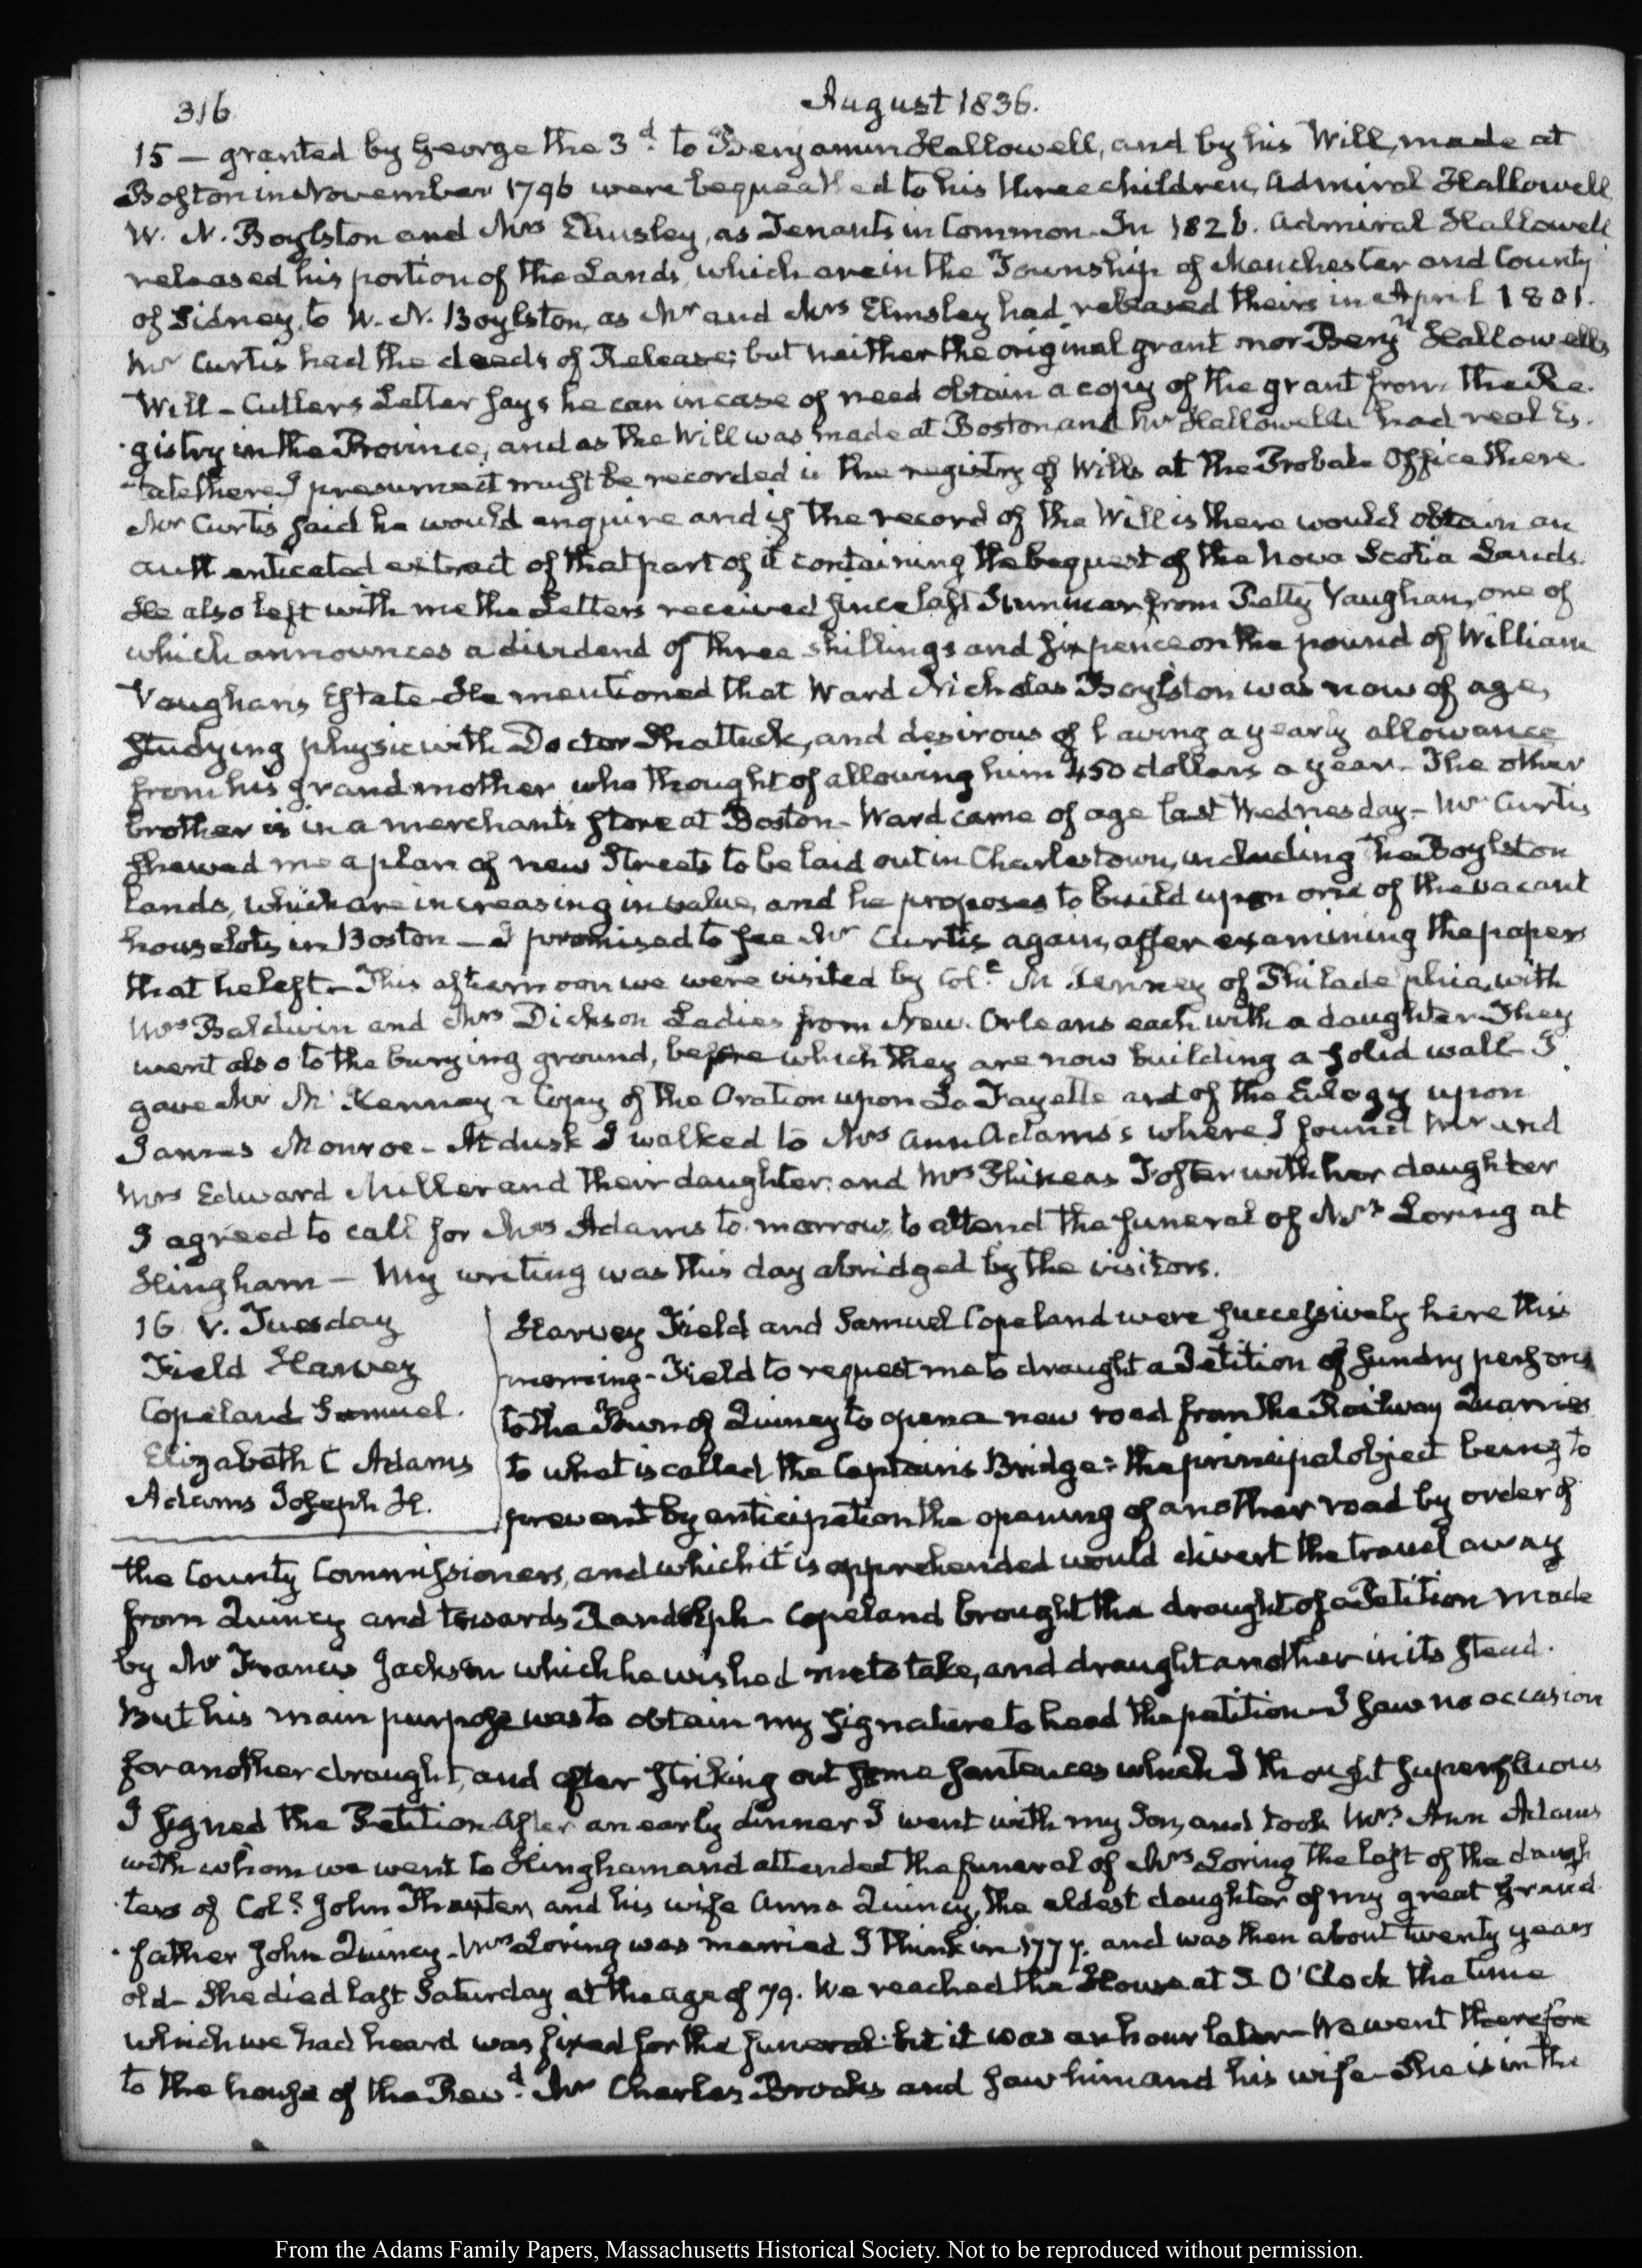 316
August 1836.
15 — granted by George the 3d. to Benjamin Hallowell, and by his Will, made at
Boston in November 1796 were bequeathed to his three children, Admiral Hallowell,
W. N. Boylston and Mrs Elmsley, as Tenants in Common. In 1826. Admiral Hallowell
released his portion of the Lands, which are in the Township of Manchester and County
of Sidney, to W. N. Boylston, as Mr and Mrs Elmsley had released theirs in April 1801.
Mr Curtis had the deeds of Release; but neither the original grant nor Benjn Hallowell's
Will – Cutlers Letter says he can in case of need obtain a copy of the grant from the Re-
gistry in the Province, and as the Will was made at Boston, and Mr Hallowell had real Es-
tate there, I presume it must be recorded in the registry of Wills at the Probate Office there
Mr Curtis said he would enquire and if the record of the Will is there would obtain an
authenticated extract of that part of it containing the bequest of the Nova Scotia Lands.
He also left with me the Letters received since last Summer from Petty Vaughan, one of
which announces a dividend of three shillings and sixpence on the pound of William
Vaughans Estate. He mentioned that Ward Nicholas Boylston was now of age,
studying physic with Doctor Shattuck, and desirous of having a yearly allowance
from his grandmother who thought of allowing him 450 dollars a year. The other
brother is in a merchants store at Boston – Ward came of age last Wednesday – Mr Curtis
shewed me a plan of new Streets to be laid out in Charlestown, including the Boylston
lands, which are increasing in value, and he proposes to build upon one of the vacant
houselots in Boston — I promised to see Mr Curtis again, after examining the papers
that he left – This afternoon we were visited by Col. McKenney of Philadelphia, with
Mrs Baldwin and Mrs Dickson Ladies from New-Orleans each with a daughter. They
went also to the burying ground, before which they are now building a solid wall. I
gave Mr McKenney a Copy of the Oration upon La Fayette and of the Eulogy upon
James Monroe – At dusk I walked to Mrs Ann Adams's where I found Mr and
Mrs Edward Miller and their daughter, and Mrs Phineas Foster with her daughter
I agreed to call for Mrs Adams to-morrow, to attend the funeral of Mrs Loring at
Hingham — My writing was this day abridged by the visitors.
16 V. Tuesday
Field Harvey
Copeland Samuel.
Elizabeth C Adams
Adams Joseph H.
Harvey Field and Samuel Copeland were successively here this
morning – Field to request me to draught a Petition of sundry persons
to the Town of Quincy to open a new road from the Railway Quarries
to what is called the Captains Bridge: the principal object being to
prevent by anticipation the opening of another road by order of
the County Commissioners, and which it is apprehended would divert the travel away
from Quincy and towards Randolph – Copeland brought the draught of a Petition made
by Mr Francis Jackson which he wished me to take, and draught another in its stead.
But his main purpose was to obtain my signature to head the petition – I saw no occasion
for another draught, and after striking out some sentences which I thought superfluous
I signed the Petition. After an early dinner I went with my Son, and took Mrs. Ann Adams
with whom we went to Hingham and attended the funeral of Mrs Loring the last of the daugh-
ters of Col. John Thaxter, and his wife Anna Quincy, the eldest daughter of my great Grand-
father John Quincy. Mrs Loring was married I think in 1777. and was then about twenty years
old – She died last Saturday at the age of 79. We reached the House at 3 O'Clock the time
which we had heard was fixed for the funeral: but it was an hour later – We went therefore
to the house of the Revd. Mr Charles Brooks and saw him and his wife – She is in the
From the Adams Family Papers, Massachusetts Historical Society. Not to be reproduced without permission.